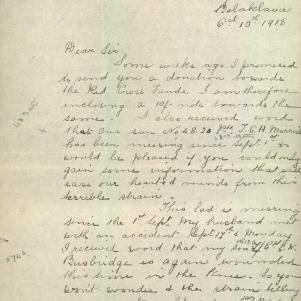 Balaklava
Oct 10th 1918
Dear Sir
Some weeks ago I promised
to send you a donation towards
the Red Cross Funds. I am therefore
enclosing a 10/- note towards the
same. I also received word
that our son No 4830 Pte T. G. H. Morris
has been missing since Sept 1st
would be pleased if you could
gain some information that will
ease our hearts & minds from this
terrible strain.
This lad is missing
since the 1st Sept. My husband met
with an accident Sept 17th & Monday
I received word that my
Busbridge is again wounded
this time in the knee. So you
won't wonder the strain